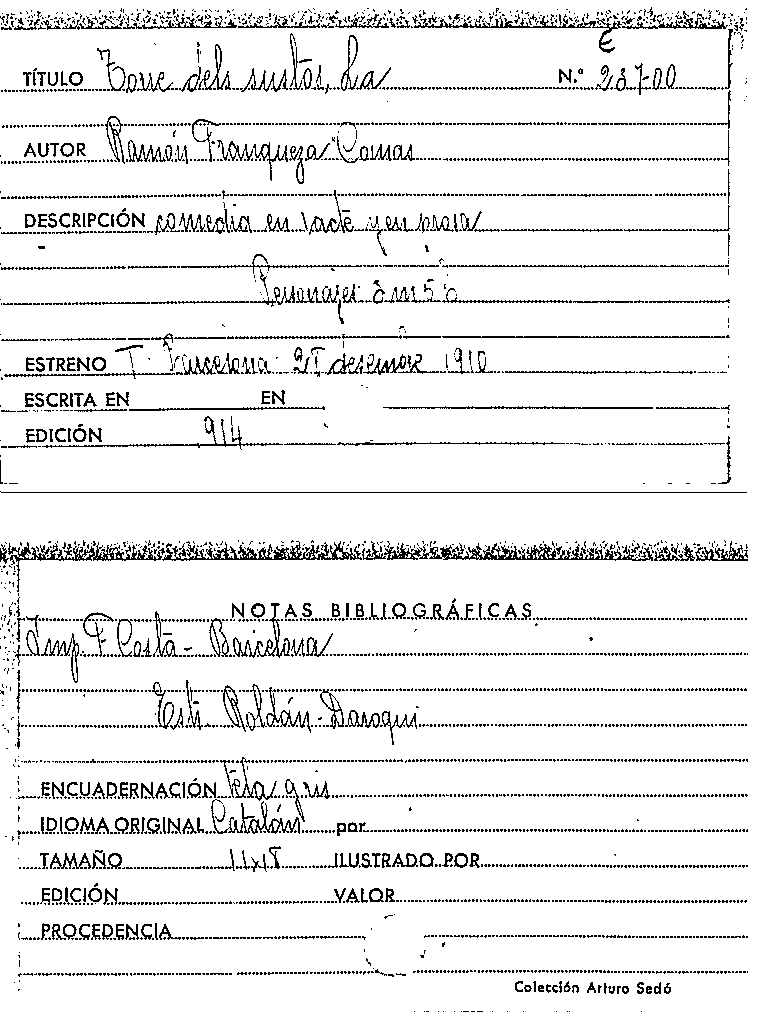 E
TÍTULO Torre dels sustos, La N.º 237-00
AUTOR Ramón Franqueza Comas
DESCRIPCIÓN comedia en 1 acte y en prosa
Personajes 8 m 5 h
ESTRENO T. Barcelona desembre 1910
ESCRITA EN EN
EDICIÓN 914
NOTAS BIBLIOGRÁFICAS
Imp. F Costa - Barcelona
Est. Roldán-Daroqui
ENCUADERNACIÓN tela gris
IDIOMA ORIGINAL Catalán por
TAMAÑO 11x18 ILUSTRADO POR
EDICIÓN VALOR
PROCEDENCIA
Colección Arturo Sedó